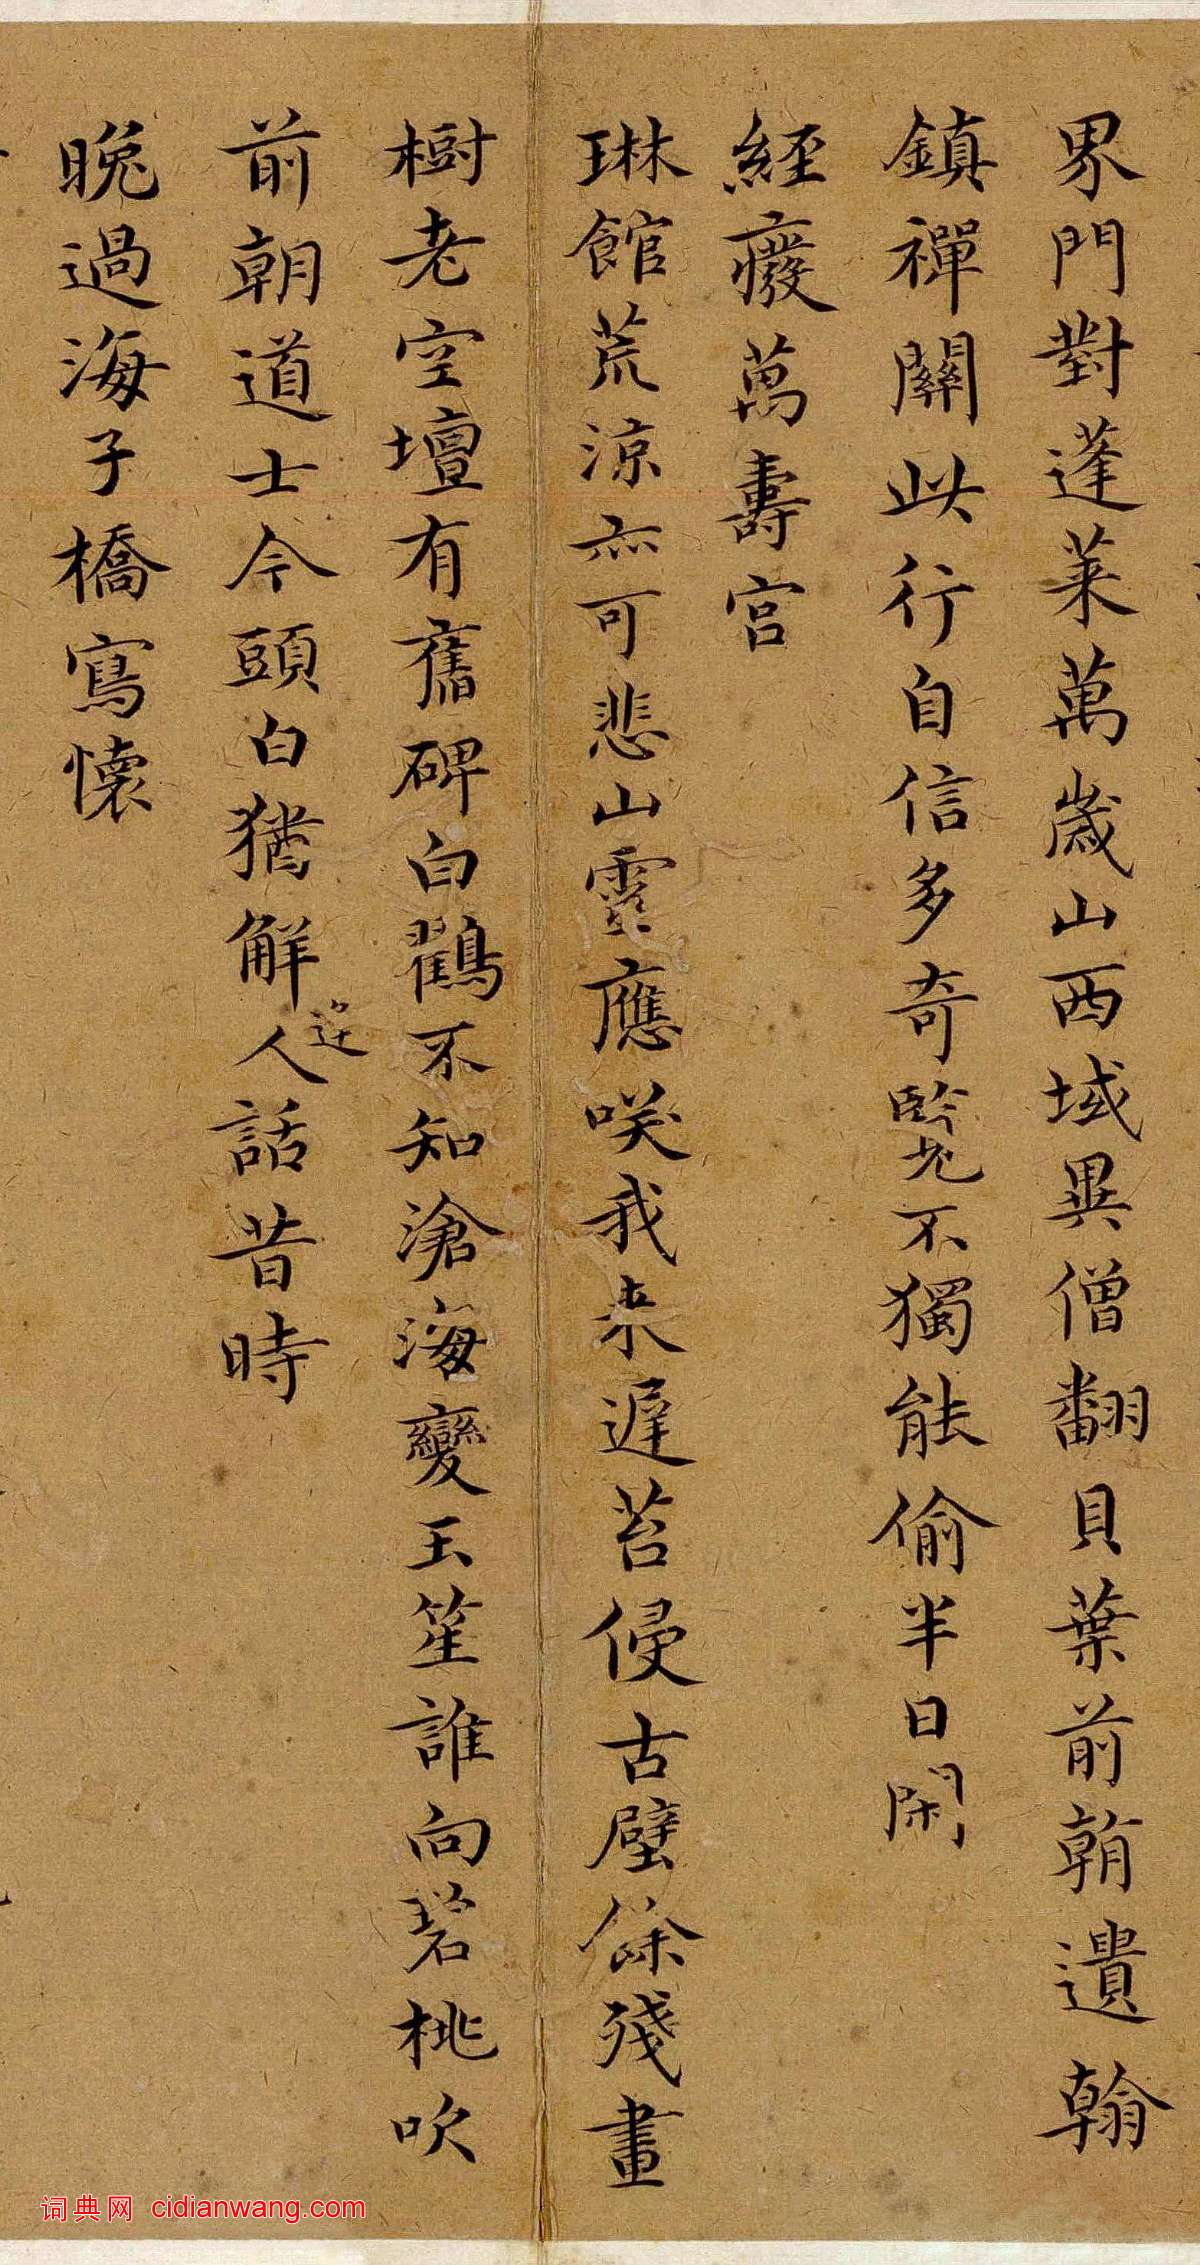 界門對蓬萊萬歲山西域異僧翻貝葉前朝遺翰
鎮禪關此行自信多奇覽不獨能偷半日閑
經癈萬壽宮
琳館荒涼亦可悲山靈應咲我來遲苔侵古壁餘殘畫
樹老空壇有舊碑白鸛不知滄海變玉笙誰向碧桃吹
前朝道士今頭白猶解迂人話昔時
晚過海子橋寫懷
词典网 cidianwang.com